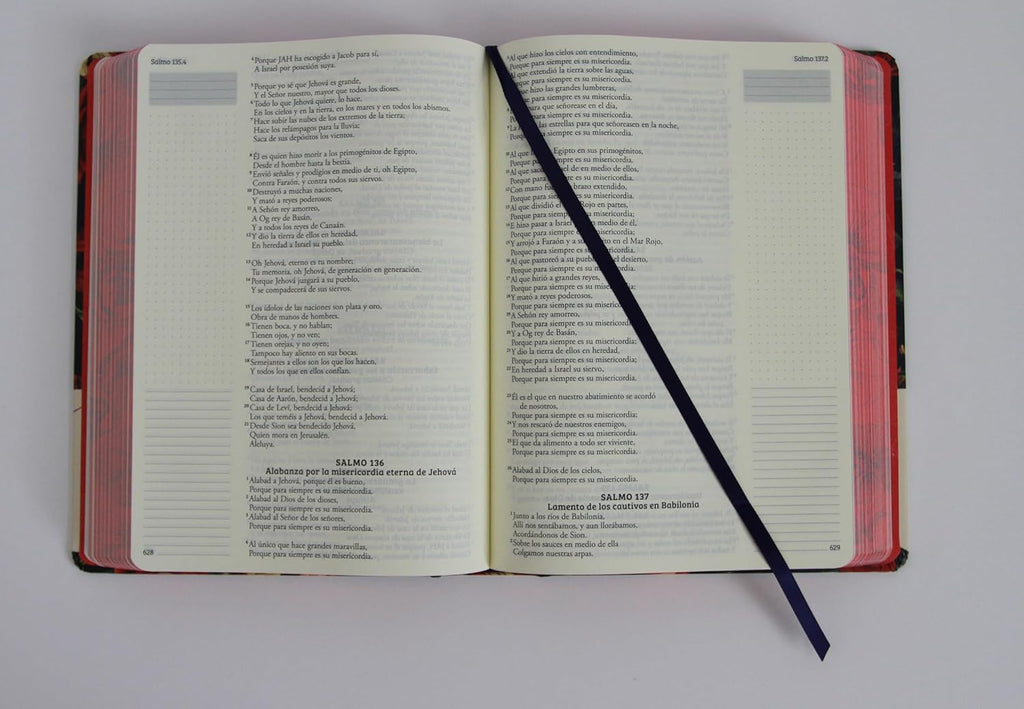 Salmo 135.4
4 Porque JAH ha escogido a Jacob para sí,
A Israel por posesión suya.
5 Porque yo sé que Jehová es grande,
Y el Señor nuestro, mayor que todos los dioses.
6 Todo lo que Jehová quiere, lo hace,
En los cielos y en la tierra, en los mares y en todos los abismos.
7 Hace subir las nubes de los extremos de la tierra;
Hace los relámpagos para la lluvia;
Saca de sus depósitos los vientos.
8 Él es quien hizo morir a los primogénitos de Egipto,
Desde el hombre hasta la bestia.
9 Envió señales y prodigios en medio de ti, oh Egipto,
Contra Faraón, y contra todos sus siervos.
10 Destruyó a muchas naciones,
Y mató a reyes poderosos;
11 A Sehón rey amorreo,
A Og rey de Basán,
Y a todos los reyes de Canaán.
12 Y dio la tierra de ellos en heredad,
En heredad a Israel su pueblo.
13 Oh Jehová, eterno es tu nombre;
Tu memoria, oh Jehová, de generación en generación.
14 Porque Jehová juzgará a su pueblo,
Y se compadecerá de sus siervos.
15 Los ídolos de las naciones son plata y oro,
Obra de manos de hombres.
16 Tienen boca, y no hablan;
Tienen ojos, y no ven;
17 Tienen orejas, y no oyen;
Tampoco hay aliento en sus bocas.
18 Semejantes a ellos son los que los hacen,
Y todos los que en ellos confían.
19 Casa de Israel, bendecid a Jehová;
Casa de Aarón, bendecid a Jehová;
20 Casa de Leví, bendecid a Jehová;
Los que teméis a Jehová, bendecid a Jehová.
21 Desde Sion sea bendecido Jehová,
Quien mora en Jerusalén.
Aleluya.
SALMO 136
Alabanza por la misericordia eterna de Jehová
1 Alabad a Jehová, porque él es bueno,
Porque para siempre es su misericordia.
2 Alabad al Dios de los dioses,
Porque para siempre es su misericordia.
3 Alabad al Señor de los señores,
Porque para siempre es su misericordia.
4 Al único que hace grandes maravillas,
Porque para siempre es su misericordia.
628
Salmo 137.2
5 Al que hizo los cielos con entendimiento,
Porque para siempre es su misericordia.
Al que extendió la tierra sobre las aguas,
Porque para siempre es su misericordia.
hizo las grandes lumbreras,
para siempre es su misericordia.
para que señorease en el día,
para siempre es su misericordia.
9 La las estrellas para que señoreasen en la noche,
para siempre es su misericordia.
10 Al que Egipto en sus primogénitos,
Porque siempre es su misericordia.
11 Al que de en medio de ellos,
Porque siempre es su misericordia.
12 Con mano brazo extendido,
Porque para es su misericordia.
13 Al que dividió el Rojo en partes,
Porque para siempre es su misericordia;
14 E hizo pasar a Israel en medio de él,
Porque para siempre es su misericordia;
15 Y arrojó a Faraón y a su en el Mar Rojo,
Porque para siempre es su misericordia.
16 Al que pastoreó a su pueblo el desierto,
Porque para siempre es su misericordia.
17 Al que hirió a grandes reyes,
Porque para siempre es su
18 Y mató a reyes poderosos,
Porque para siempre es su
19 A Sehón rey amorreo,
Porque para siempre es su misericordia;
20 Y a Og rey de Basán,
Porque para siempre es su misericordia;
21 Y dio la tierra de ellos en heredad,
Porque para siempre es su misericordia;
22 En heredad a Israel su siervo,
Porque para siempre es su misericordia.
23 Él es el que en nuestro abatimiento se acordó
de nosotros,
Porque para siempre es su misericordia;
24 Y nos rescató de nuestros enemigos,
Porque para siempre es su misericordia.
25 El que da alimento a todo ser viviente,
Porque para siempre es su misericordia.
26 Alabad al Dios de los cielos,
Porque para siempre es su misericordia.
SALMO 137
Lamento de los cautivos en Babilonia
1 Junto a los ríos de Babilonia,
Allí nos sentábamos, y aun llorábamos,
Acordándonos de Sion.
2 Sobre los sauces en medio de ella
Colgamos nuestras arpas.
629